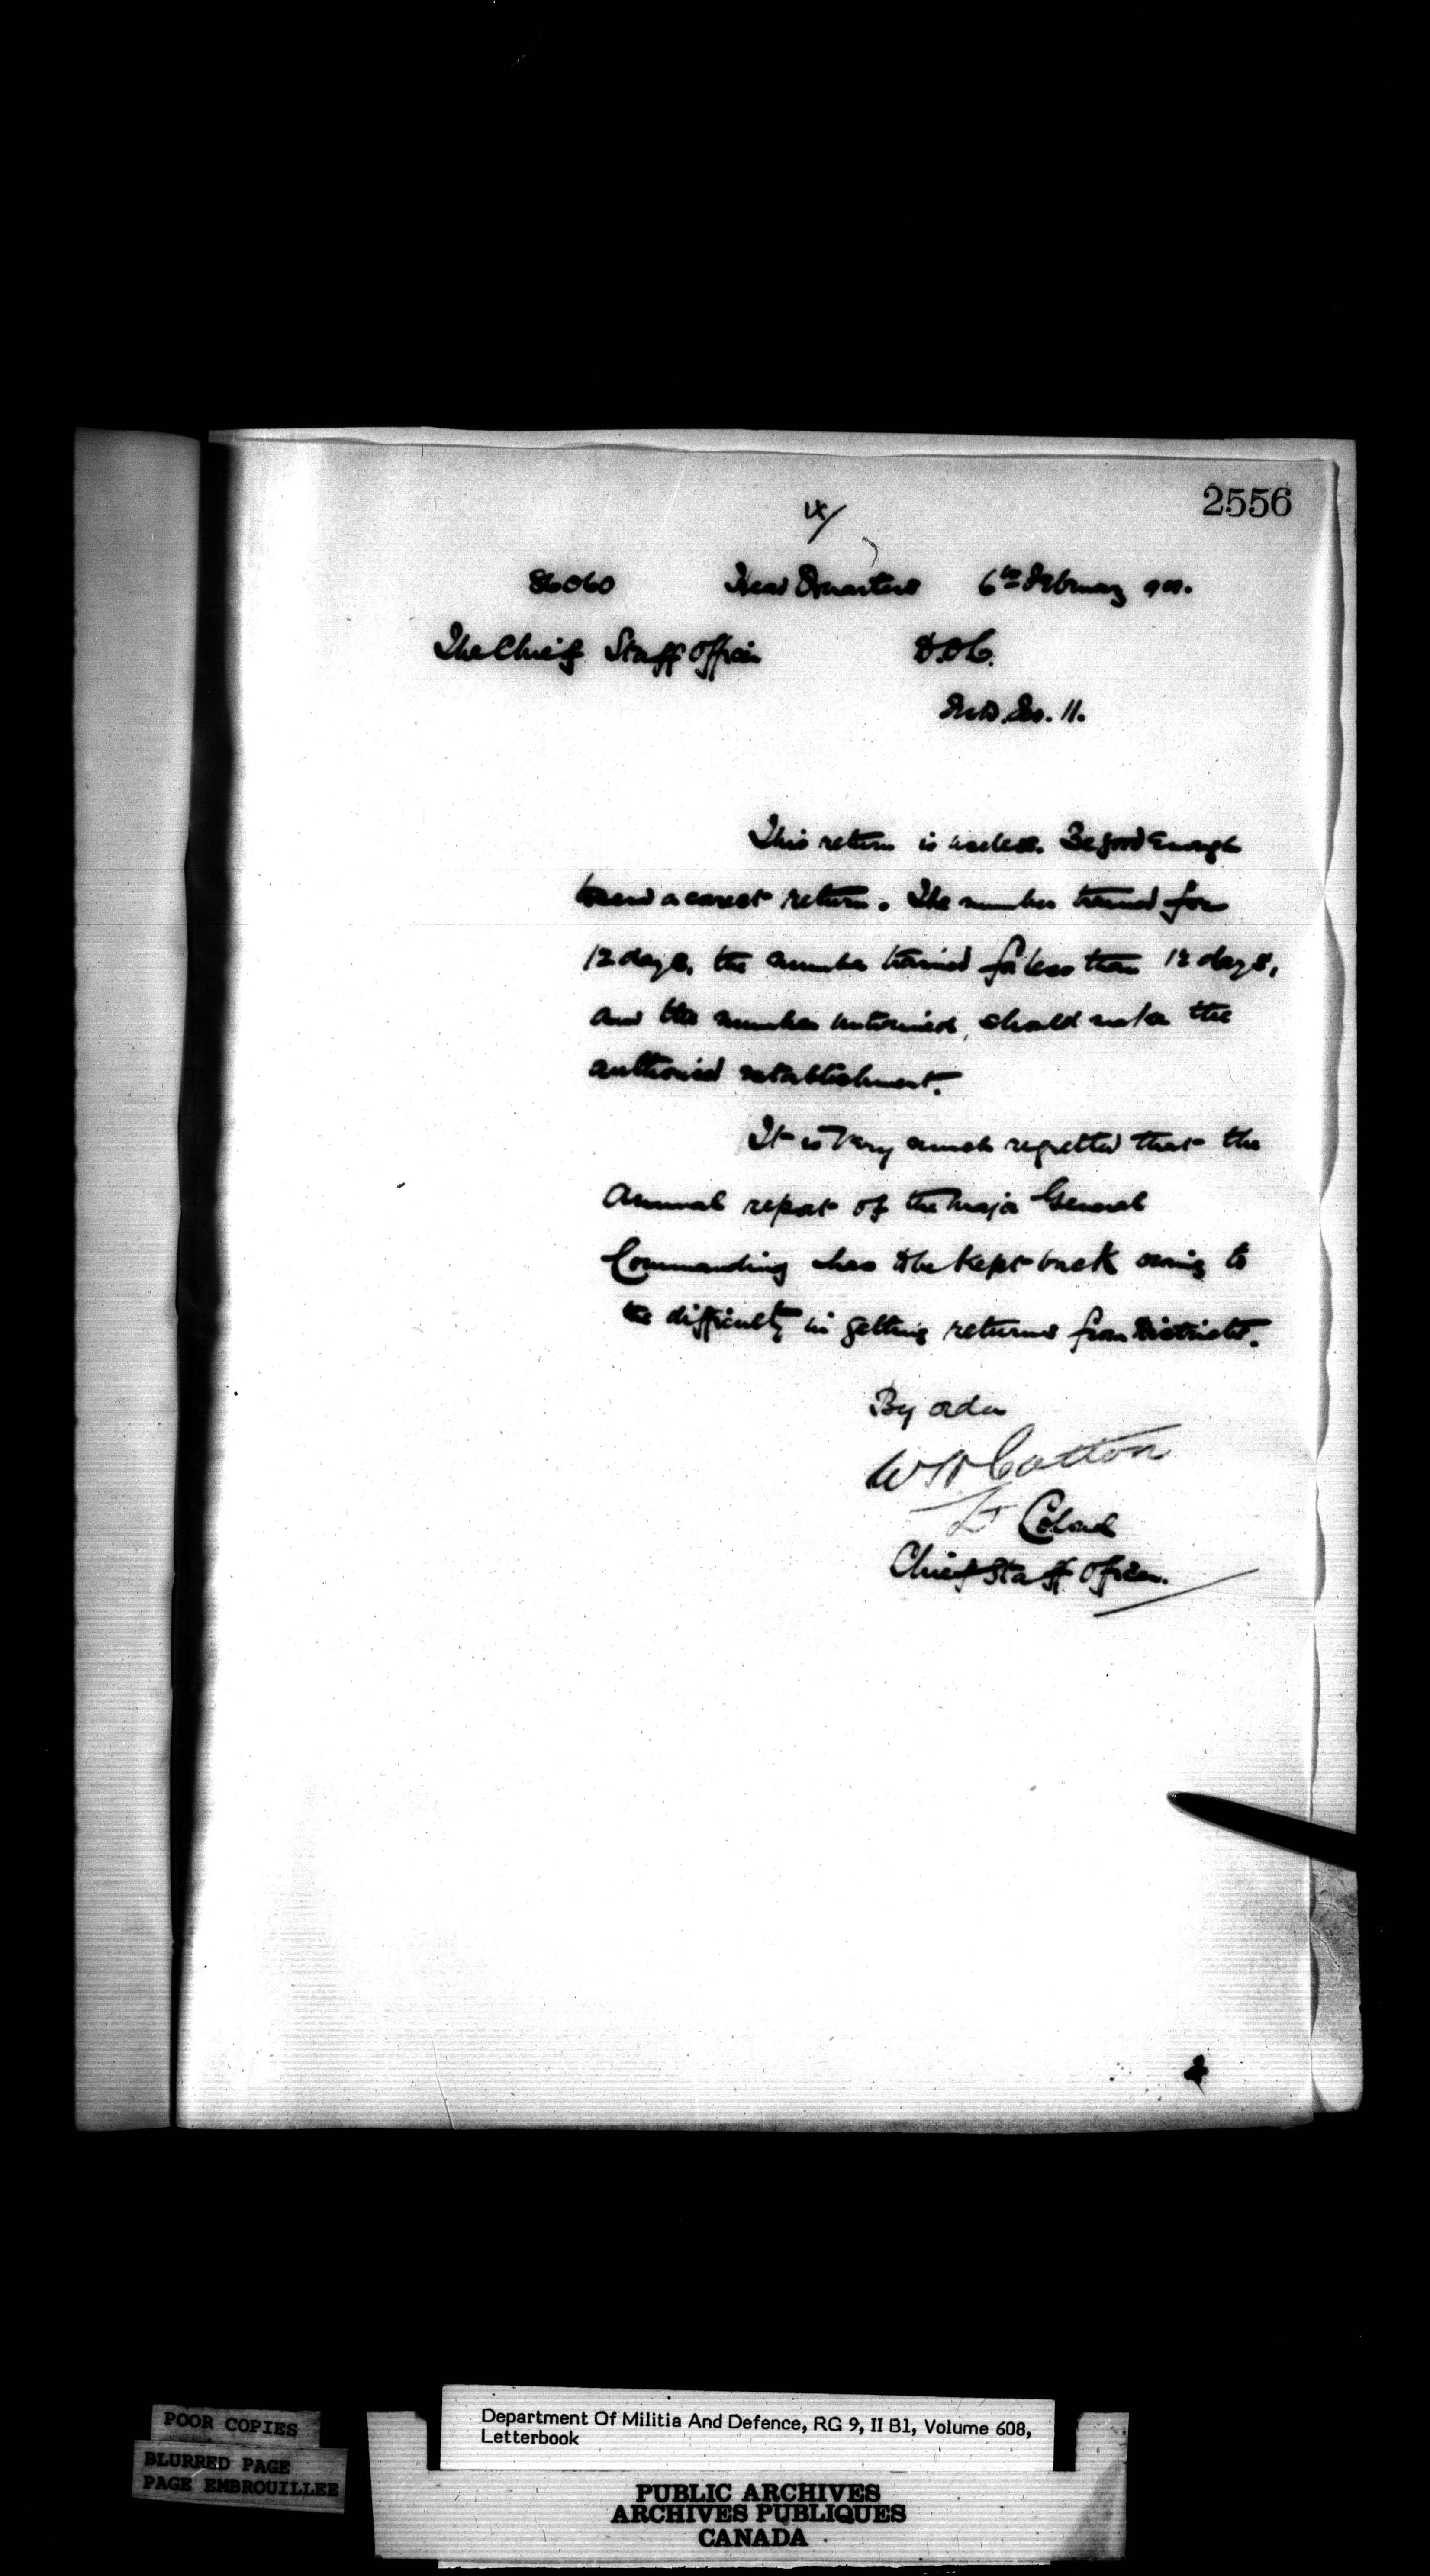 2556
86060 Head Quarters 6th February 901.
The Chief Staff Officer D.O.C.
M.D. No. 11.
This return is useless. Be good enough
to send a correct return. The number trained for
12 days, the number trained for less than 12 days,
and the number untrained, should make the
authorised establishment.
It is very much regretted that the
Annual report of the Major General
Commanding has to be kept back owing to
the difficulty in getting returns from Districts.
By order
W H Cotton
Lt Colonel
Chief Staff Officer.
POOR COPIES
BLURRED PAGE
PAGE EMBROUILLEE
Department Of Militia And Defence, RG 9, II B1, Volume 608,
Letterbook
PUBLIC ARCHIVES
ARCHIVES PUBLIQUES
CANADA